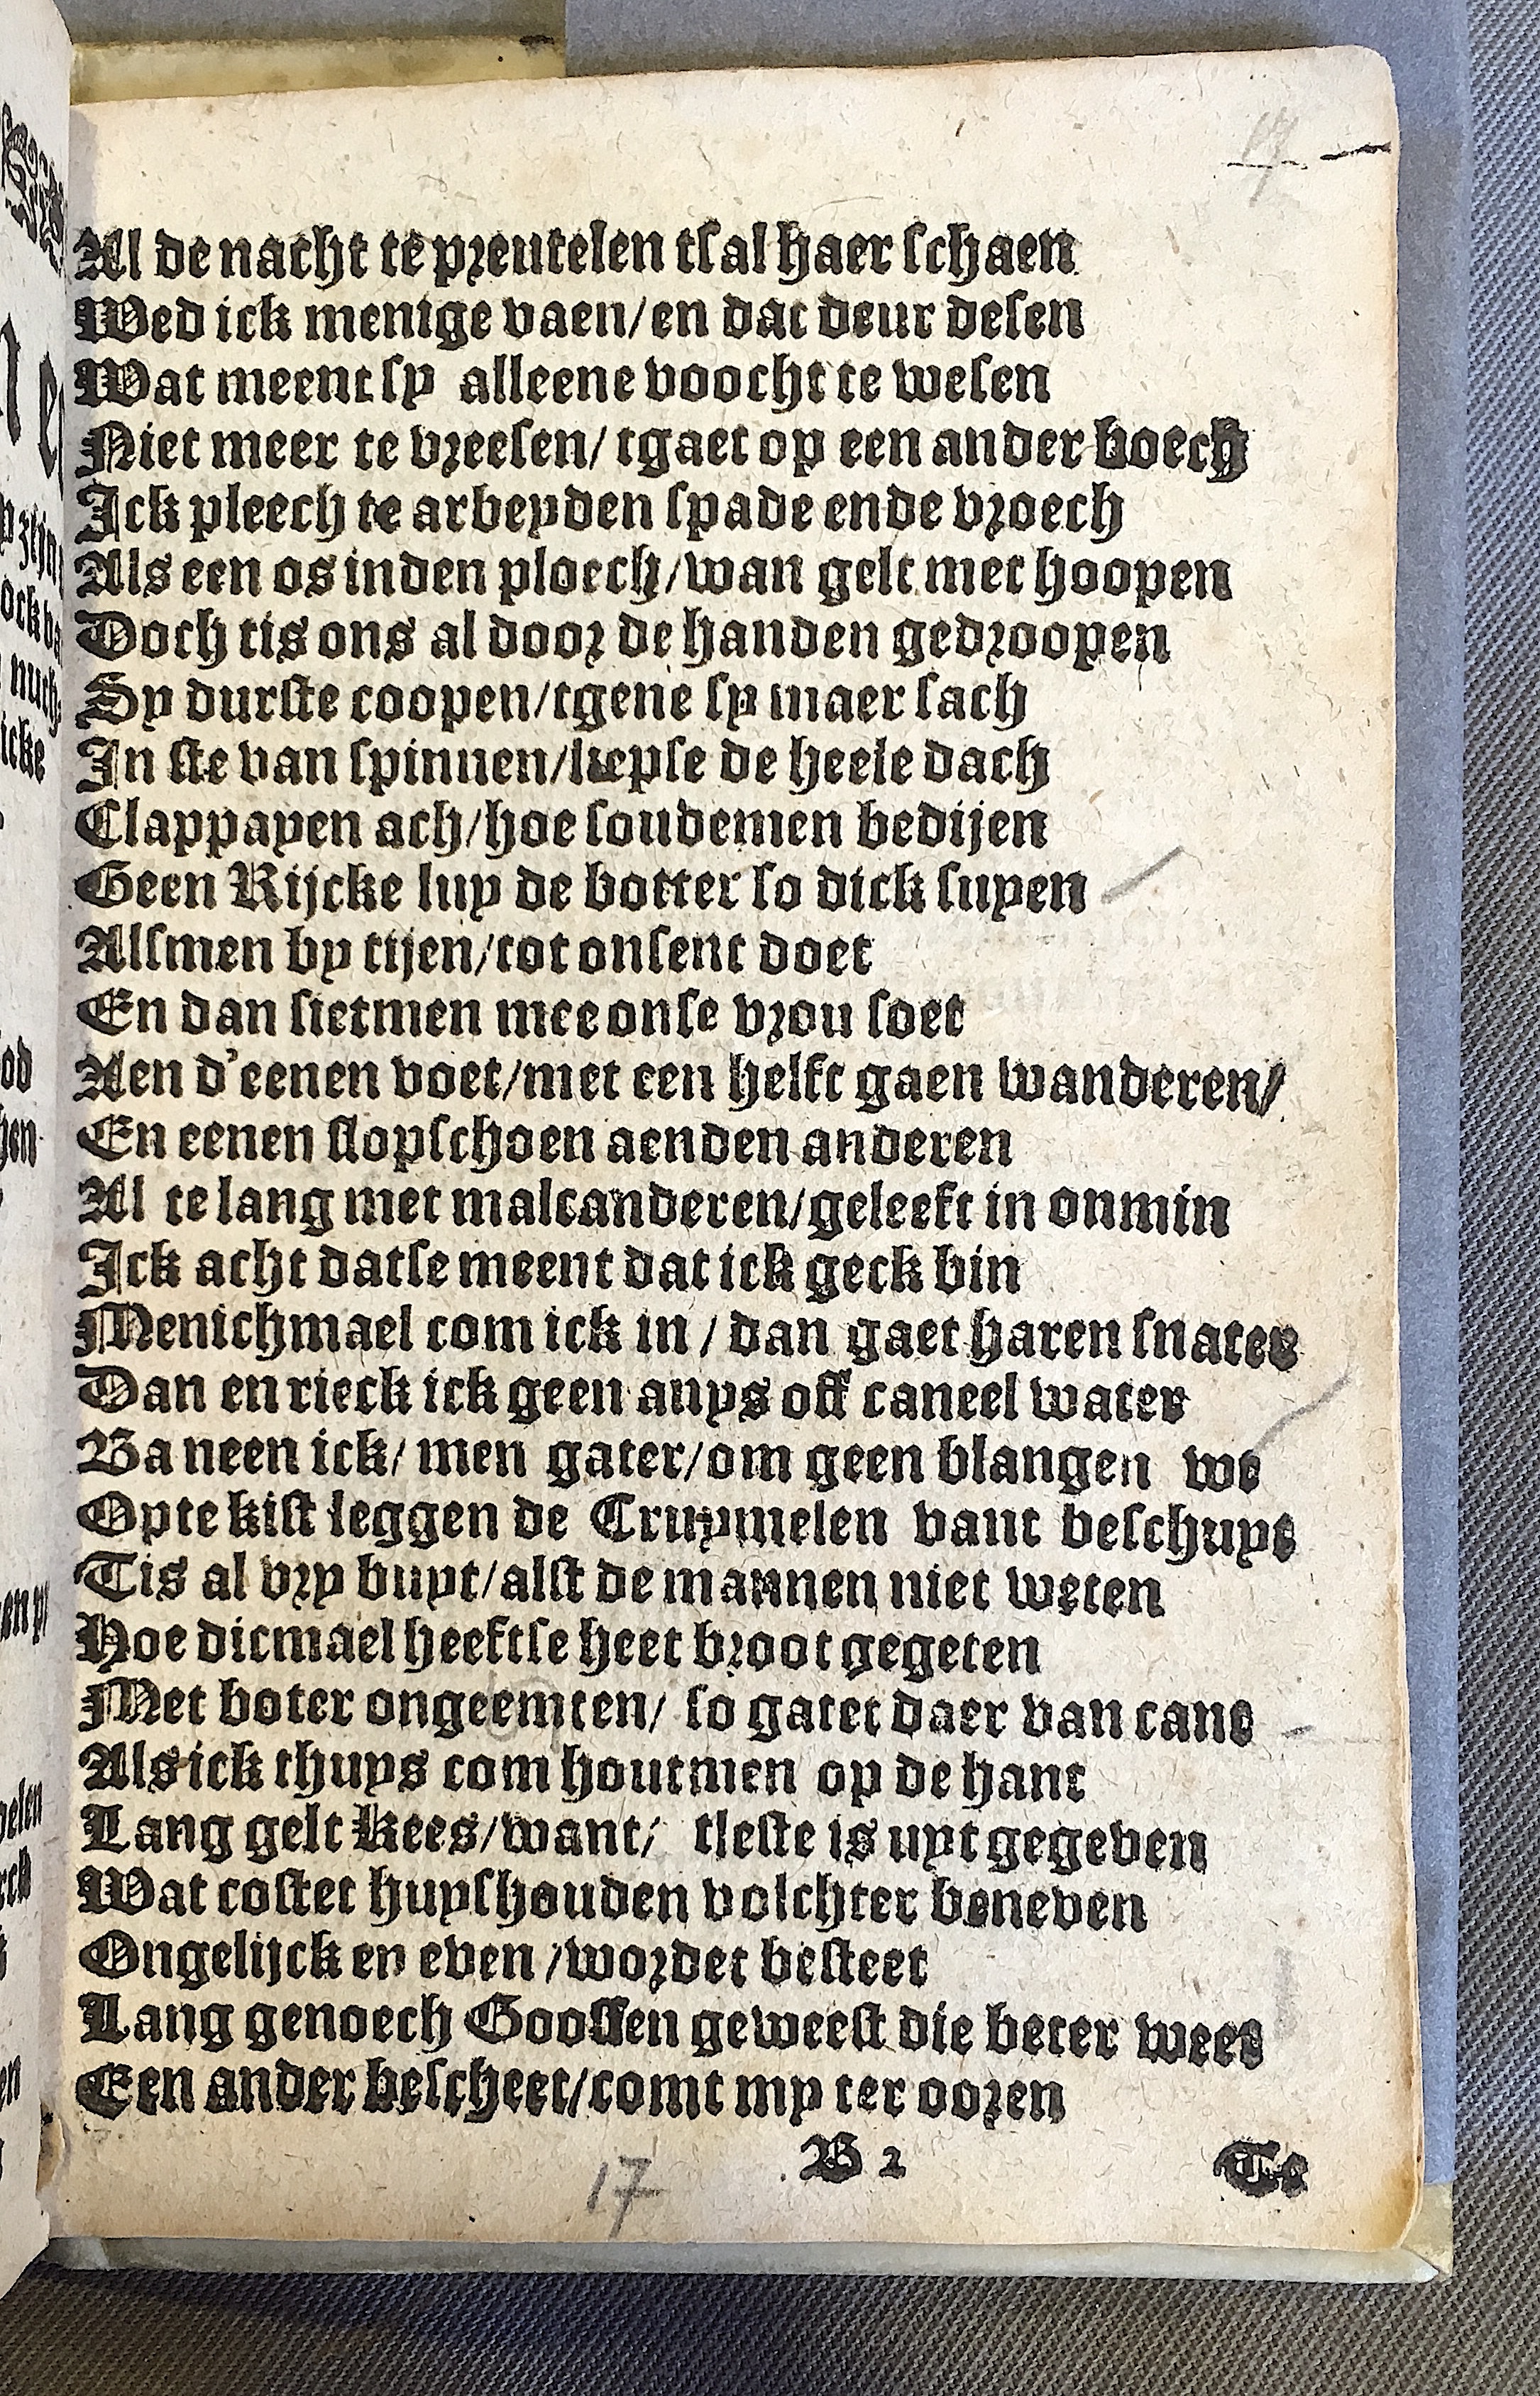 17
Al de nacht te preutelen tsal haer schaen
Wed ick menige vaen/en dat deur desen
Wat meent sy alleene voocht te wesen
Niet meer te vreesen/ tgaet op een ander boech
Ick pleech te arbeyden spade ende vroech
Als een os inden ploech/wan gelt met hoopen
Doch tis ons al door de handen gedroopen
Sy durste coopen/tgene sy maer sach
In ste van spinnen/liepse de heele dach
Clappayen ach/hoe soudemen bedijen
Geen Rijcke luy de botter so dick suyen
Alsmen by tijen/tot onsent doet
En dan sietmen mee onse vrou soet
Aen d'eenen voet/met een helft gaen wanderen/
En eenen slopschoen aenden anderen
Al te lang met malcanderen/geleeft in onmin
Ick acht datse meent dat ick geck bin
Menichmael com ick in / dan gaet haren snater
Dan en rieck ick geen anys off caneel water
Ba neen ick/ men gater/om geen blangen we
Opte kist leggen de Cruymelen vant beschuyt
Tis al vry buyt/alst de mannen niet weten
Hoe dicmael heeftse heet broot gegeten
Met boter ongeemten/ so gatet daer van cant
Als ick thuys com houtmen op de hant
Lang gelt Kees/want/ tleste is uyt gegeven
Wat costet huyshouden volchter beneven
Ongelijck en even /wordet besteet
Lang genoech Goossen geweest die beter weet
Een ander bescheet/comt my ter ooren
B 2
Te
17